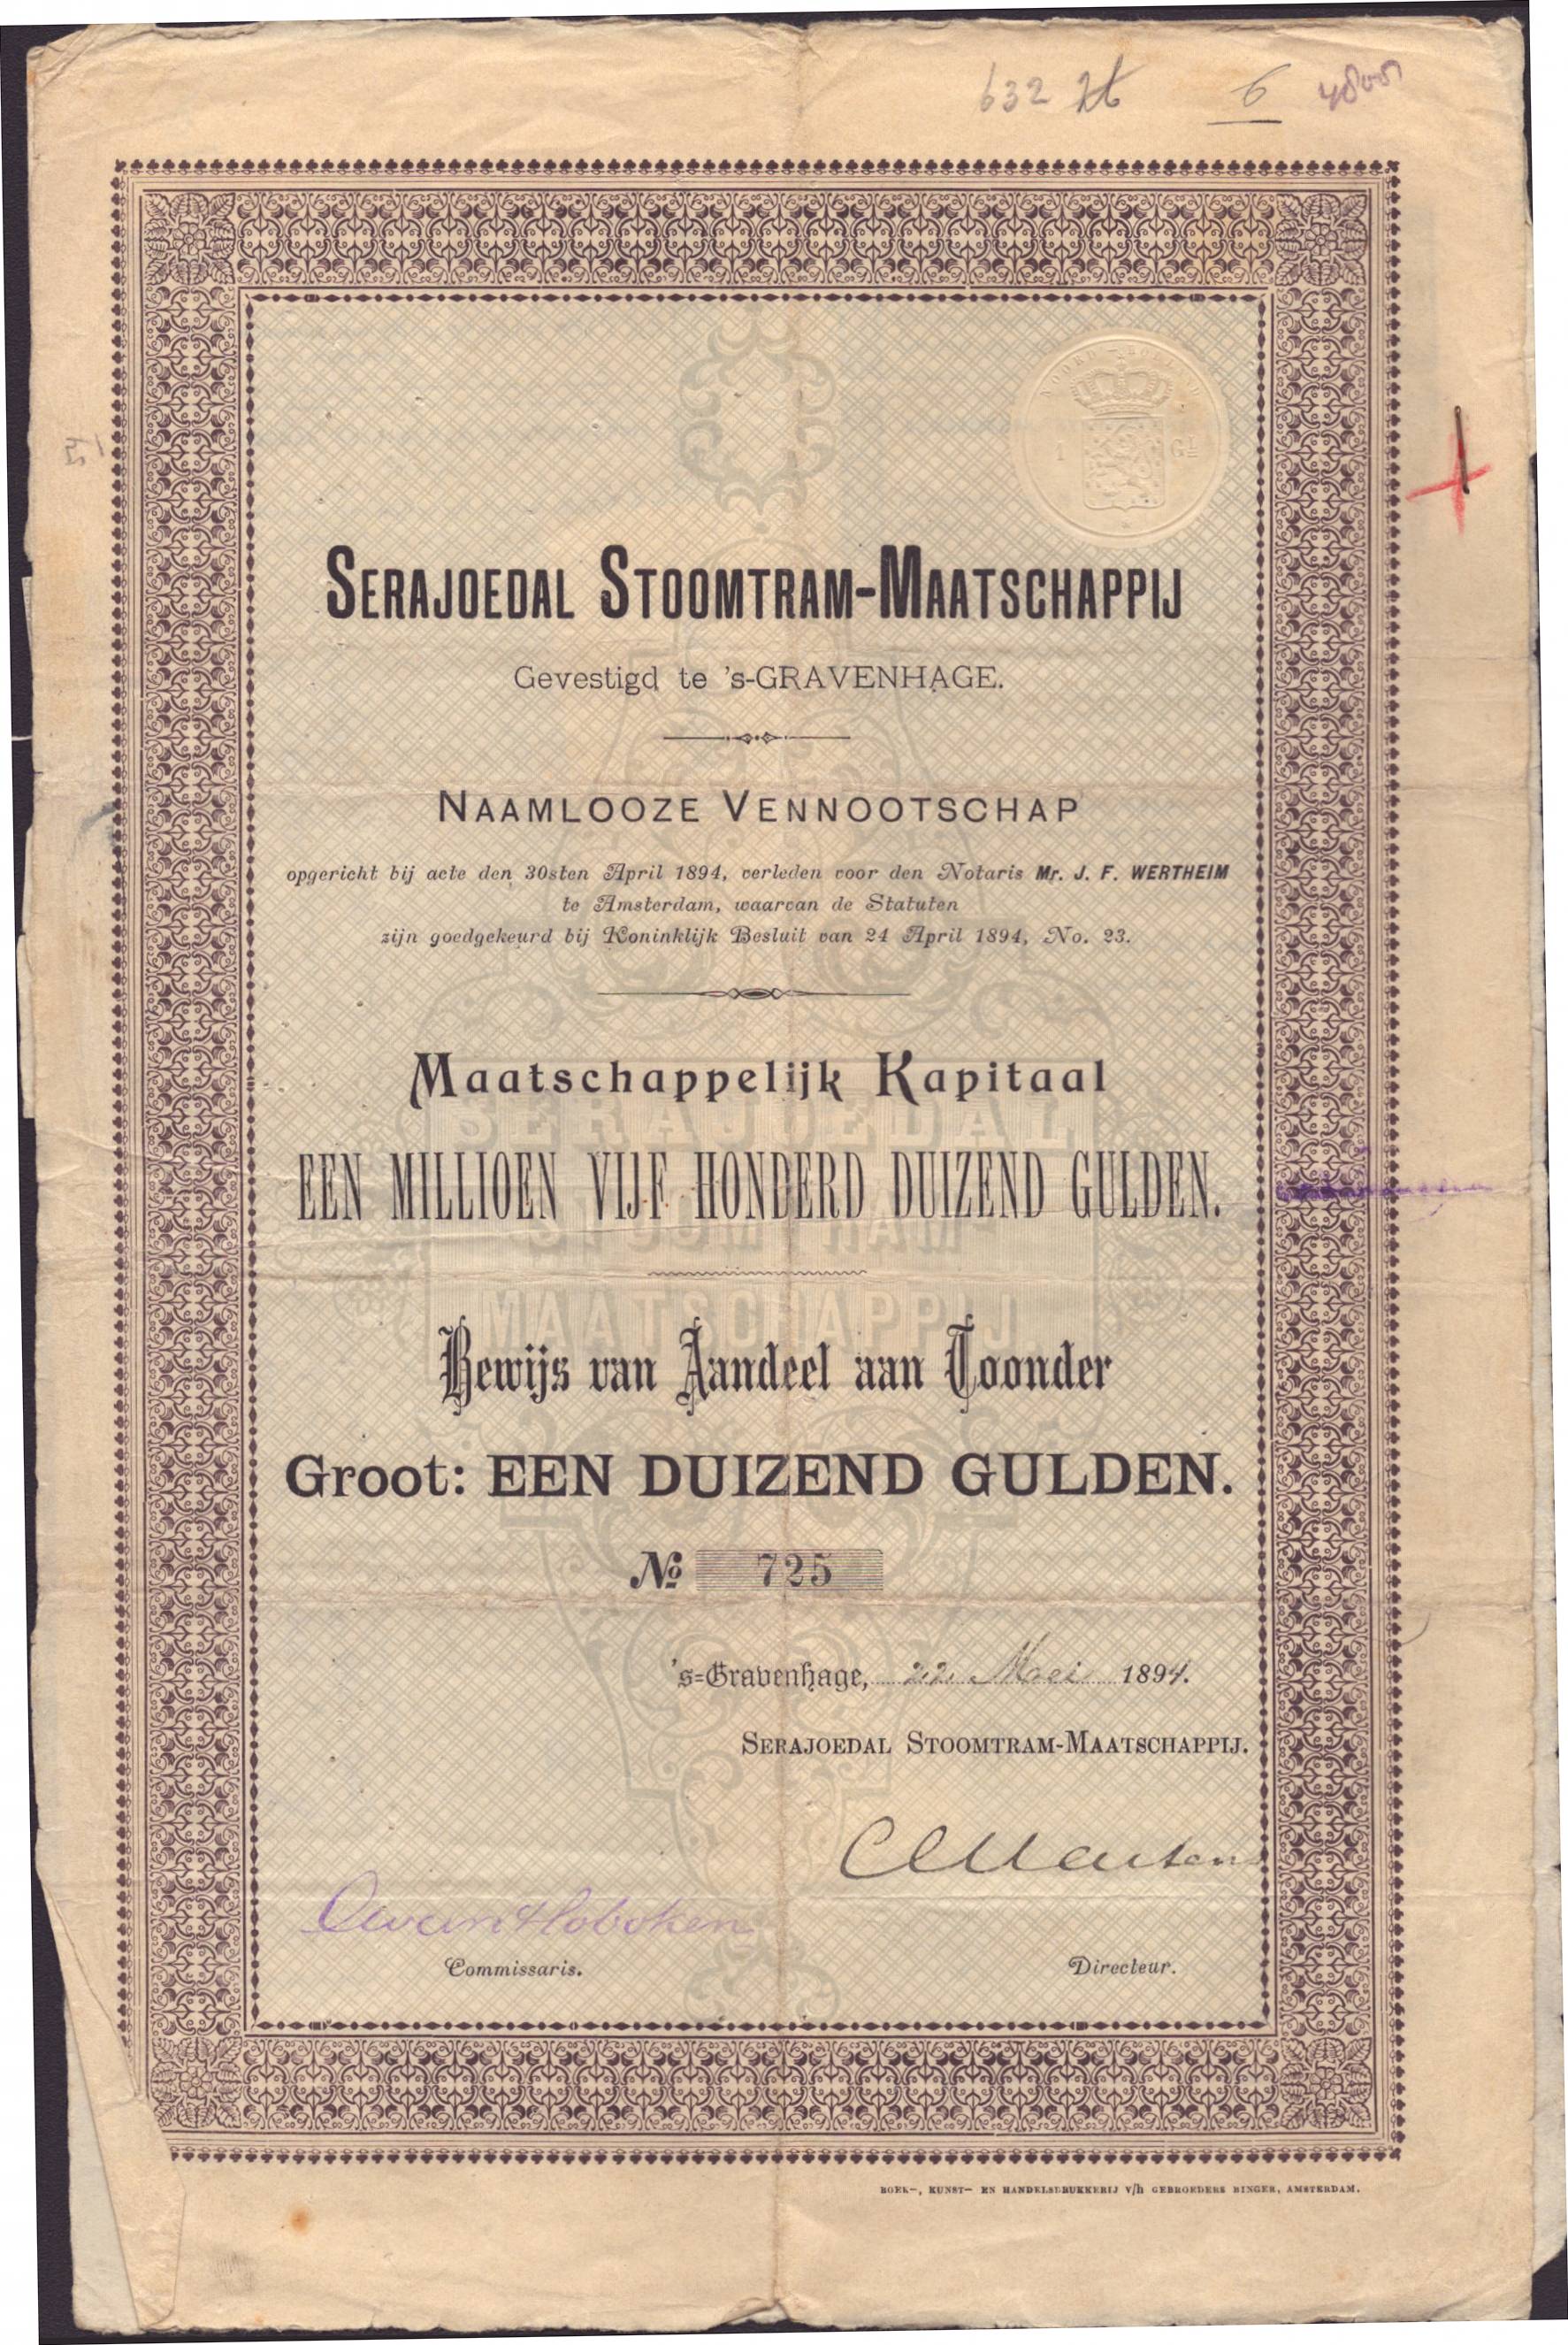 632
6
SERAJOEDAL STOOMTRAM-MAATSCHAPPIJ
Gevestigd te 's-GRAVENHAGE.
NAAMLOOZE VENNOOTSCHAP
opgericht bij acte den 30sten April 1894, verleden voor den Notaris Mr. J. F. WERTHEIM
te Amsterdam, waarvan de Statuten
zijn goedgekeurd bij Koninklijk Besluit van 24 April 1894, No. 23.
Maatschappelijk Kapitaal
SERAJOEDAL
EEN MILLIOEN VIJF HONDERD DUIZEND GULDEN.
STOOMTRAM
MAATSCHAPPIJ
Bewijs van Aandeel aan Toonder
Groot: EEN DUIZEND GULDEN.
No 725
's-Gravenhage, 22 Mei 1894.
SERAJOEDAL STOOMTRAM-MAATSCHAPPIJ.
van Hoboken
Commissaris.
Directeur.
BOEK-, KUNST- EN HANDELSDRUKKERIJ v/h GEBROEDERS BINGER, AMSTERDAM.